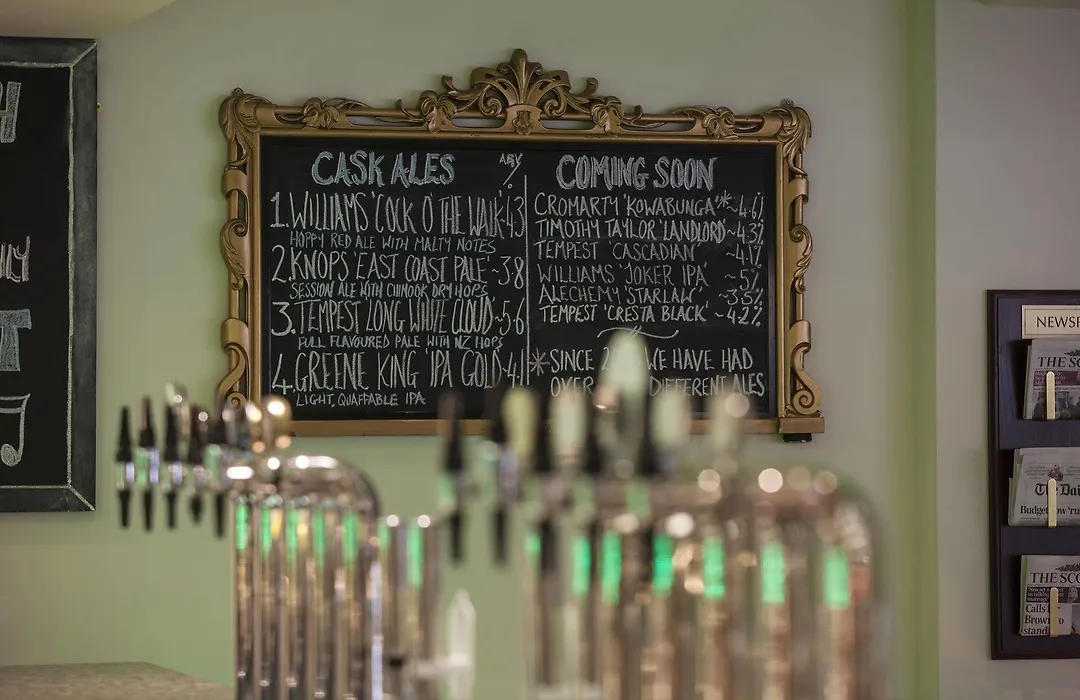 CASK ALES ABV %
1. WILLIAMS 'COCK O' THE WALK' ~ 4.3
HOPPY RED ALE WITH MALTY NOTES
2. KNOPS 'EAST COAST PALE' ~ 3.8
SESSION ALE WITH CHINOOK DRY HOPS
3. TEMPEST 'LONG WHITE CLOUD' ~ 5.6
FULL FLAVOURED PALE WITH NZ HOPS
4. GREENE KING 'IPA GOLD' ~ 4.1
LIGHT, QUAFFABLE IPA
COMING SOON
CROMARTY 'KOWABUNGA' * ~ 4.6%
TIMOTHY TAYLOR 'LANDLORD' ~ 4.3%
TEMPEST 'CASCADIAN' ~ 4.1%
WILLIAMS 'JOKER IPA' ~ 5%
ALECHEMY 'STARLAW' ~ 3.5%
TEMPEST 'CRESTA BLACK' ~ 4.2%
* SINCE WE HAVE HAD
OVER DIFFERENT ALES
NEWSP
THE SC
The Dai
Budget
THE SCO
Calls
Brown
stand